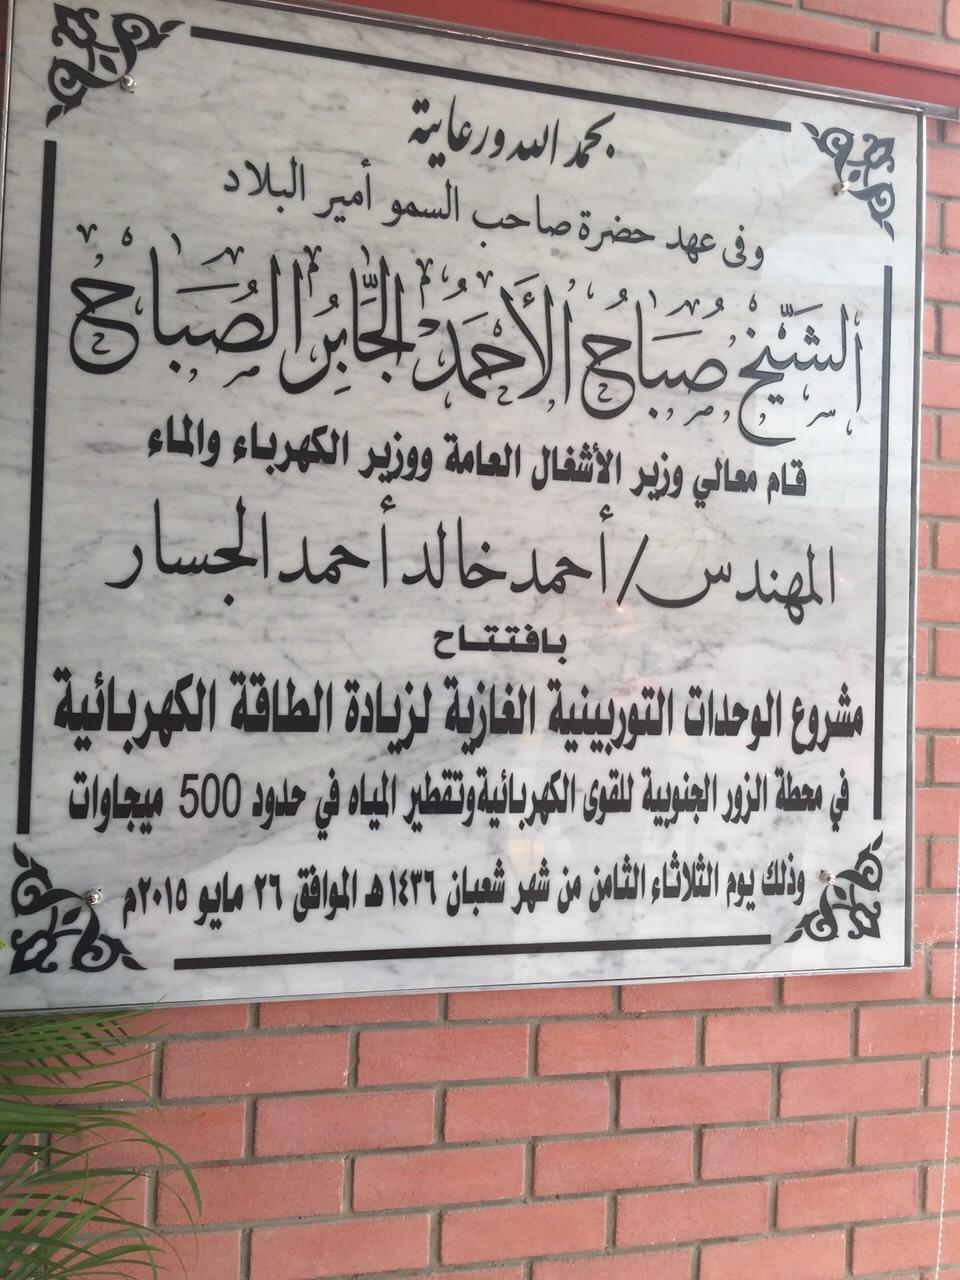 بحمد الله ورعاية
وفى عهد حضرة صاحب السمو أمير البلاد
الشَّيْخ صُبَاح الأَحْمَدُ الجَّابِرُ الصُبَاح
قام معالي وزير الأشغال العامة ووزير الكهرباء والماء
المهندس/أحمد خالد أحمد الجسار
بافتتاح
مشروع الوحدات التوربينية الغازية لزيادة الطاقة الكهربائية
في محطة الزور الجنوبية للقوى الكهربائية وتقطير المياه في حدود 500 ميجاوات
وذلك يوم الثلاثاء الثامن من شهر شعبان ١٤٣٦هـ الموافق ٢٦ مايو ٢٠١٥م